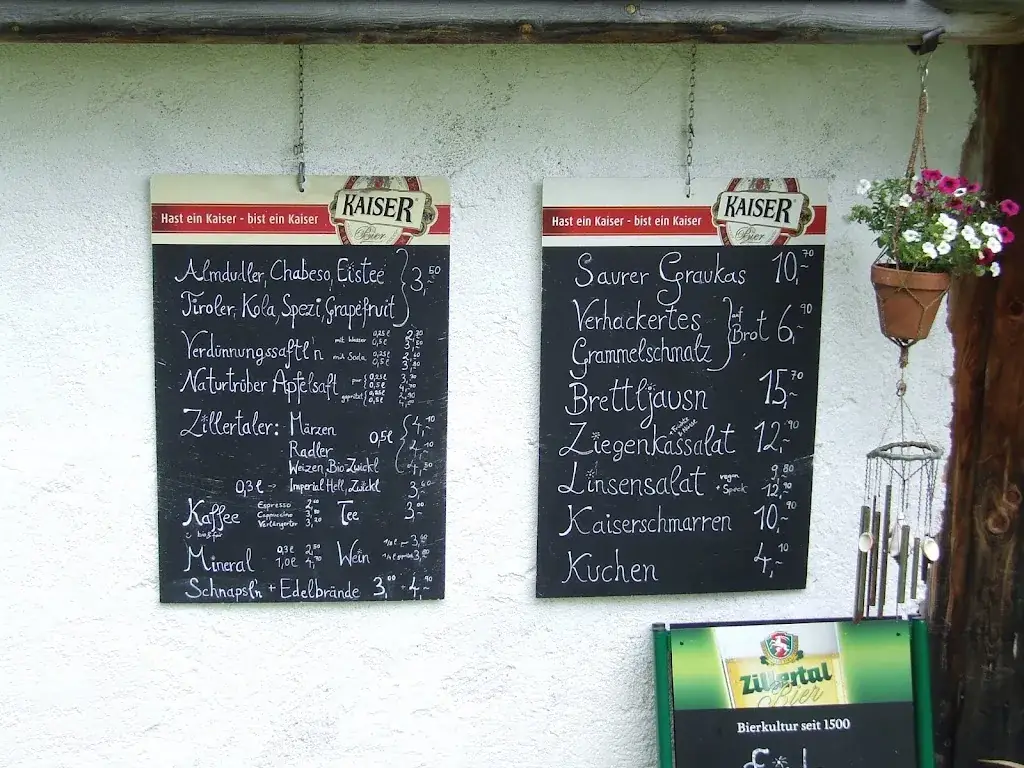 Hast ein Kaiser - bist ein Kaiser KAISER® Bier
Almdudler, Chabeso, Eistee
Tiroler, Kola, Spezi, Grapefruit 3,50
Verdünnungssaftl'n mit Wasser 0,25l
0,5l
mit Soda 0,25l
0,5l
Naturtrüber Apfelsaft pur 0,25l
0,5l
gespritzt 0,25l
0,5l
Zillertaler: Märzen 0,5l 4,10
Radler 4,10
Weizen, Bio Zwickl
0,3l → Imperial Hell, Zwickl
Kaffee Espresso
Cappuccino
Verlängerter
Tee 3,00
Mineral 0,3l
1,0l
Wein
Schnapsl'n + Edelbrände 3,00 - 4,90
Hast ein Kaiser - bist ein Kaiser KAISER® Bier
Saurer Graukas 10,70
Verhackertes
Grammelschmalz auf Brot 6,90
Brettljausn 15,70
Ziegenkassalat 12,90
Linsensalat vegan 9,80
+ Speck 12,90
Kaiserschmarren 10,90
Kuchen 4,10
Zillertal Bier
Bierkultur seit 1500